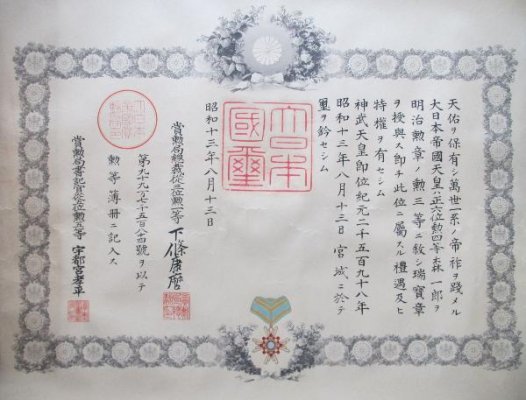 天佑ヲ保有シ萬世一系ノ帝祚ヲ踐メル
大日本帝國天皇ハ正六位勲四等森一郎ヲ
明治勲章ノ勲三等ニ敍シ瑞寶章
ヲ授與ス即チ此位ニ屬スル禮遇及ヒ
特權ヲ有セシム
神武天皇即位紀元二千五百九十八年
昭和十三年八月十三日宮城ニ於テ
璽ヲ鈐セシム
大日本
國璽
昭和十三年八月十三日
賞勲局總裁從三位勲一等下條康麿
第九十九万七千五百八十四號ヲ以テ
勲等簿册ニ記入ス
賞勲局書記官從六位勲五等宇都宮孝平